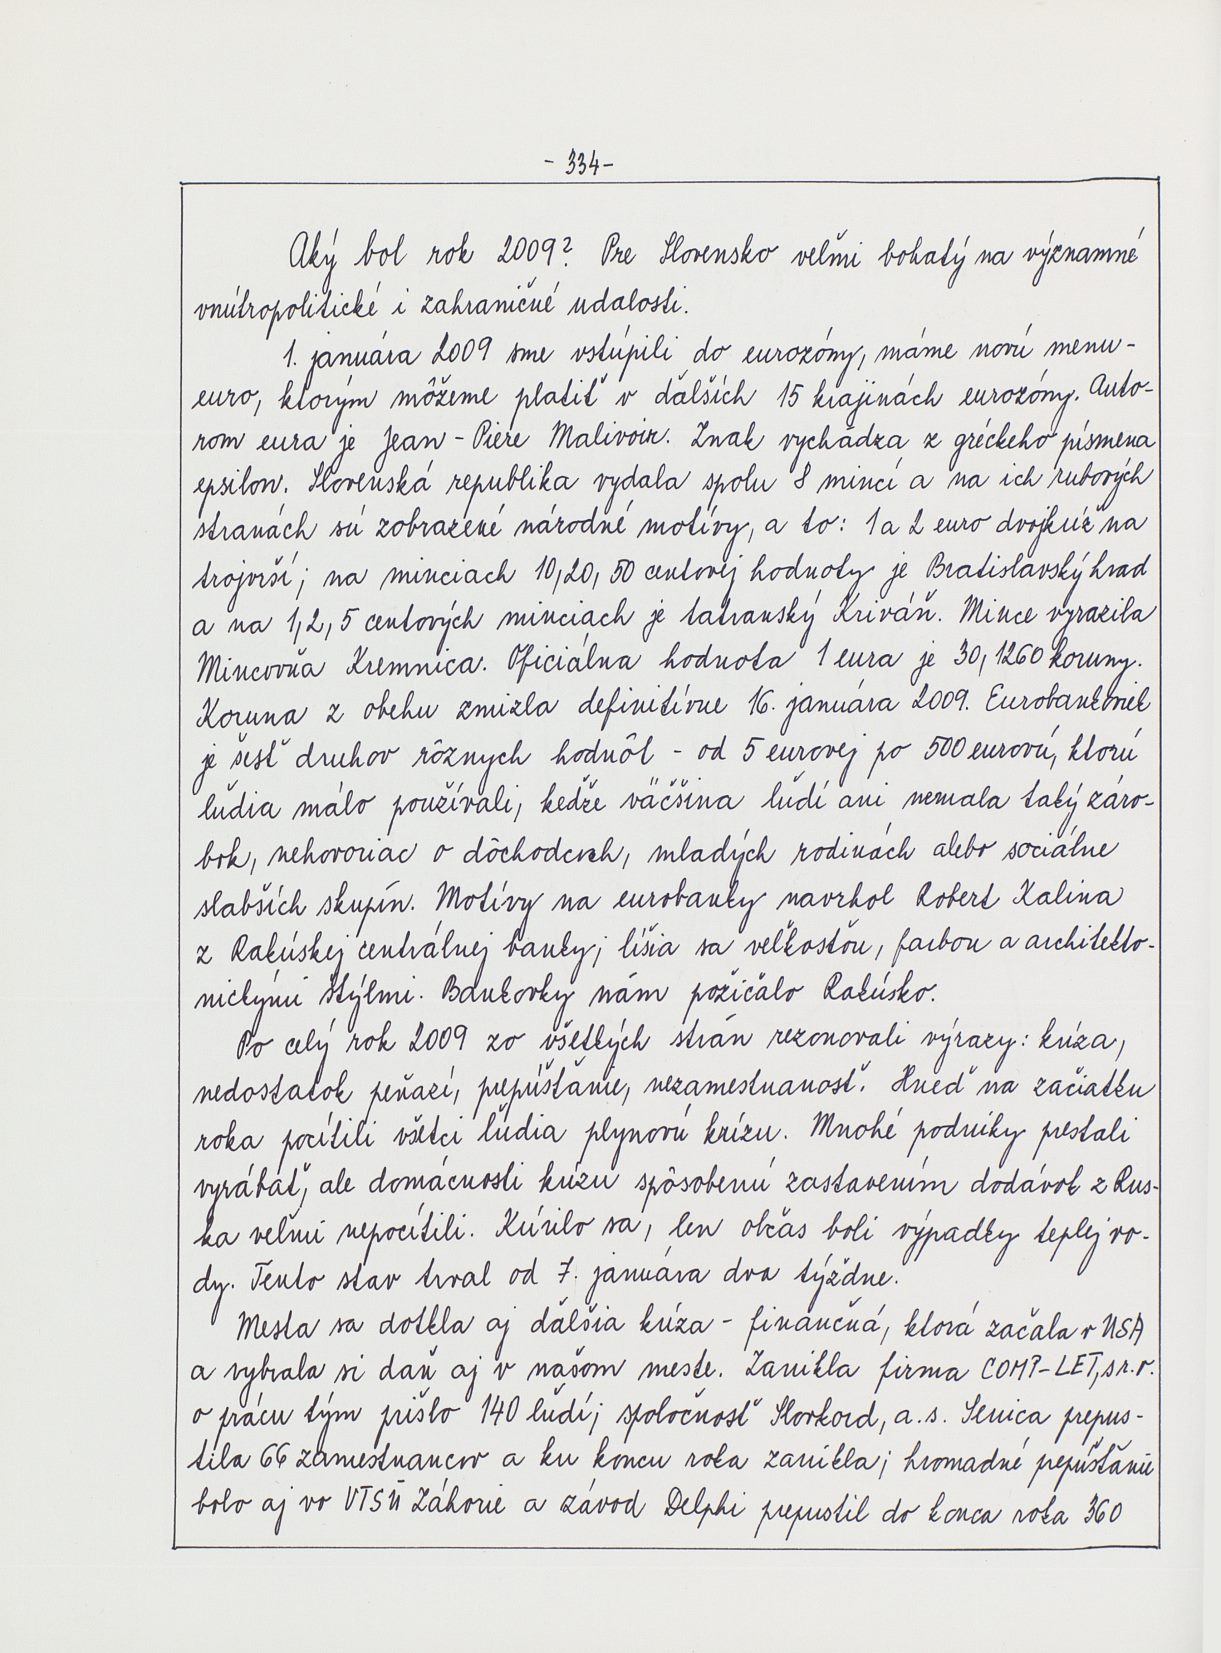 - 334 -
Aký bol rok 2009? Pre Slovensko veľmi bohatý na významné
vnútropolitické i zahraničné udalosti.
1. januára 2009 sme vstúpili do eurozóny, máme novú menu -
euro, ktorým môžeme platiť v ďalších 15 krajinách eurozóny. Auto-
rom eura je Jean - Piere Malivoir. Znak vychádza z gréckeho písmena
epsilon. Slovenská republika vydala spolu 8 mincí a na ich rubových
stranách sú zobrazené národné motívy, a to: 1 a 2 euro dvojkríž na
trojvrší; na minciach 10, 20, 50 centovej hodnoty je Bratislavský hrad
a na 1, 2, 5 centových minciach je tatranský Kriváň. Mince vyrazila
Mincovňa Kremnica. Oficiálna hodnota 1 eura je 30,1260 koruny.
Koruna z obehu zmizla definitívne 16. januára 2009. Eurobankoviek
je šesť druhov rôznych hodnôt - od 5 eurovej po 500 eurovú, ktorú
ľudia málo používali, keďže väčšina ľudí ani nemala taký záro-
bok, nehovoriac o dôchodcoch, mladých rodinách alebo sociálne
slabších skupín. Motívy na eurobanky navrhol Robert Kalina
z Rakúskej centrálnej banky; líšia sa veľkosťou, farbou a architekto-
nickými štýlmi. Bankovky nám požičalo Rakúsko.
Po celý rok 2009 zo všetkých strán rezonovali výrazy: kríza,
nedostatok peňazí, prepúšťanie, nezamestnanosť. Hneď na začiatku
roka pocítili všetci ľudia plynovú krízu. Mnohé podniky prestali
vyrábať, ale domácnosti krízu spôsobenú zastavením dodávok z Rus-
ka veľmi nepocítili. Kúrilo sa, len občas boli výpadky teplej vo-
dy. Tento stav trval od 7. januára dva týždne.
Mesta sa dotkla aj ďalšia kríza - finančná, ktorá začala v USA
a vybrala si daň aj v našom meste. Zanikla firma COMP-LET, s.r.o.
o prácu tým prišlo 140 ľudí; spoločnosť Slovkord, a.s. Senica prepus-
tila 66 zamestnancov a ku koncu roka zanikla; hromadné prepúšťanie
bolo aj vo VTSÚ Záhorie a závod Delphi prepustil do konca roka 360